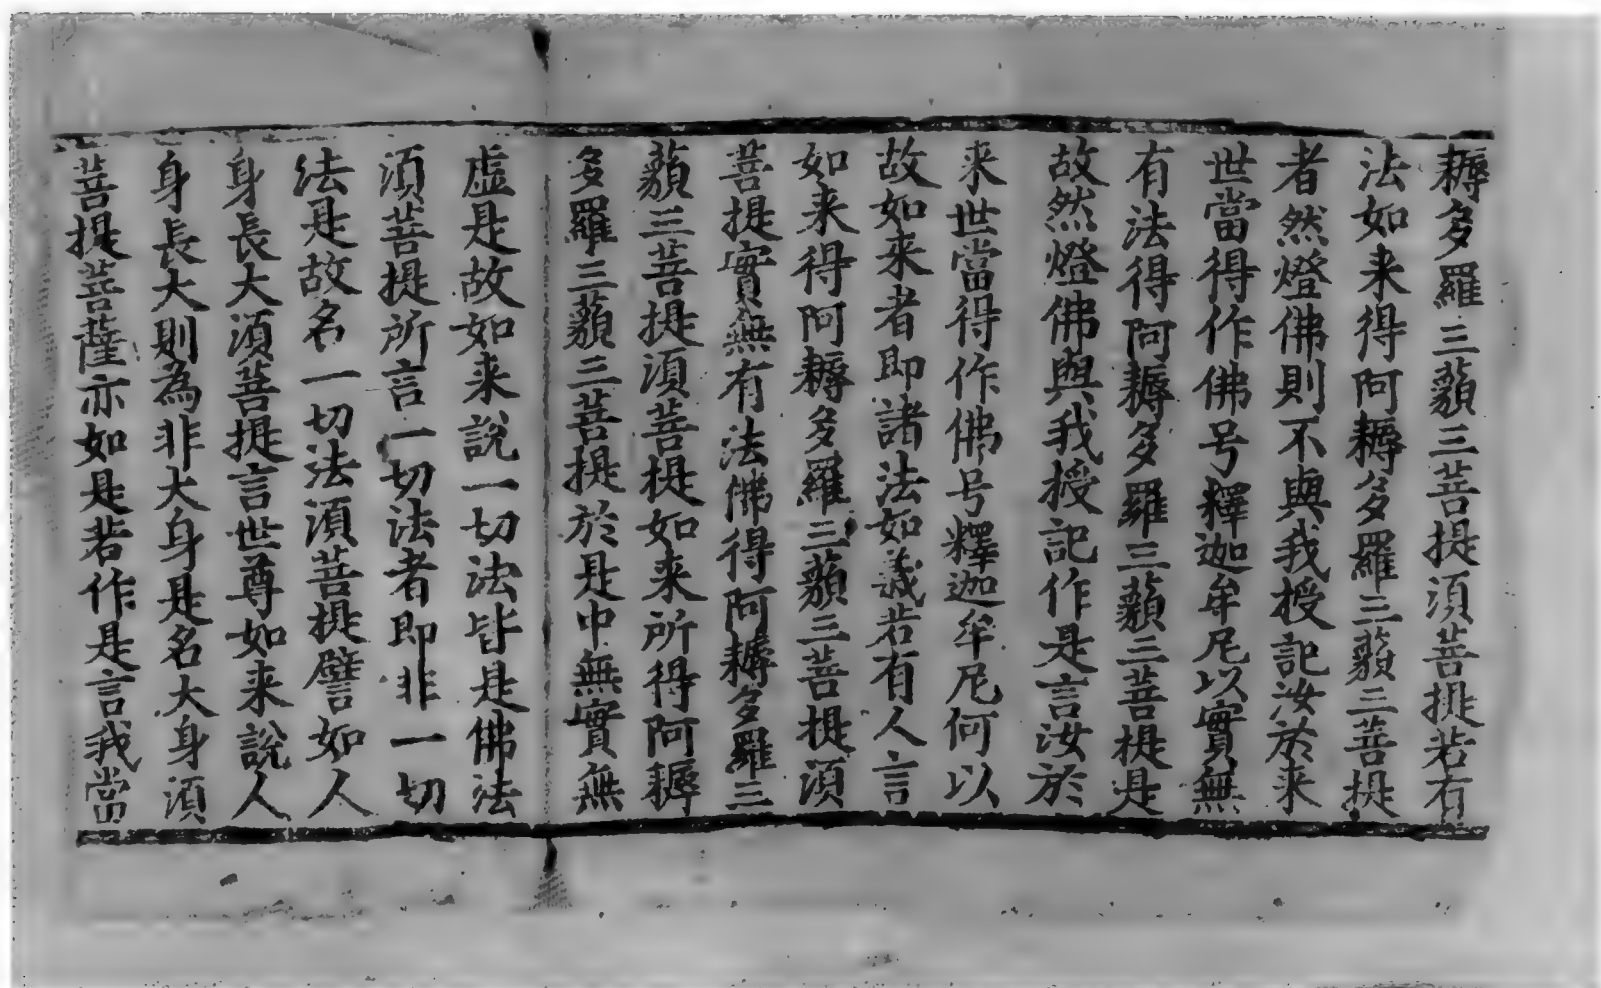 耨多羅三藐三菩提須菩提若有
法如来得阿耨多羅三藐三菩提
者然燈佛則不與我授記汝於来
世當得作佛号釋迦牟尼以實無
有法得阿耨多羅三藐三菩提是
故然燈佛與我授記作是言汝於
来世當得作佛号釋迦牟尼何以
故如来者即諸法如義若有人言
如来得阿耨多羅三藐三菩提須
菩提實無有法佛得阿耨多羅三
藐三菩提須菩提如来所得阿耨
多羅三藐三菩提於是中無實無
虛是故如来說一切法皆是佛法
須菩提所言一切法者即非一切
法是故名一切法須菩提譬如人
身長大須菩提言世尊如来說人
身長大則為非大身是名大身須
菩提菩薩亦如是若作是言我當